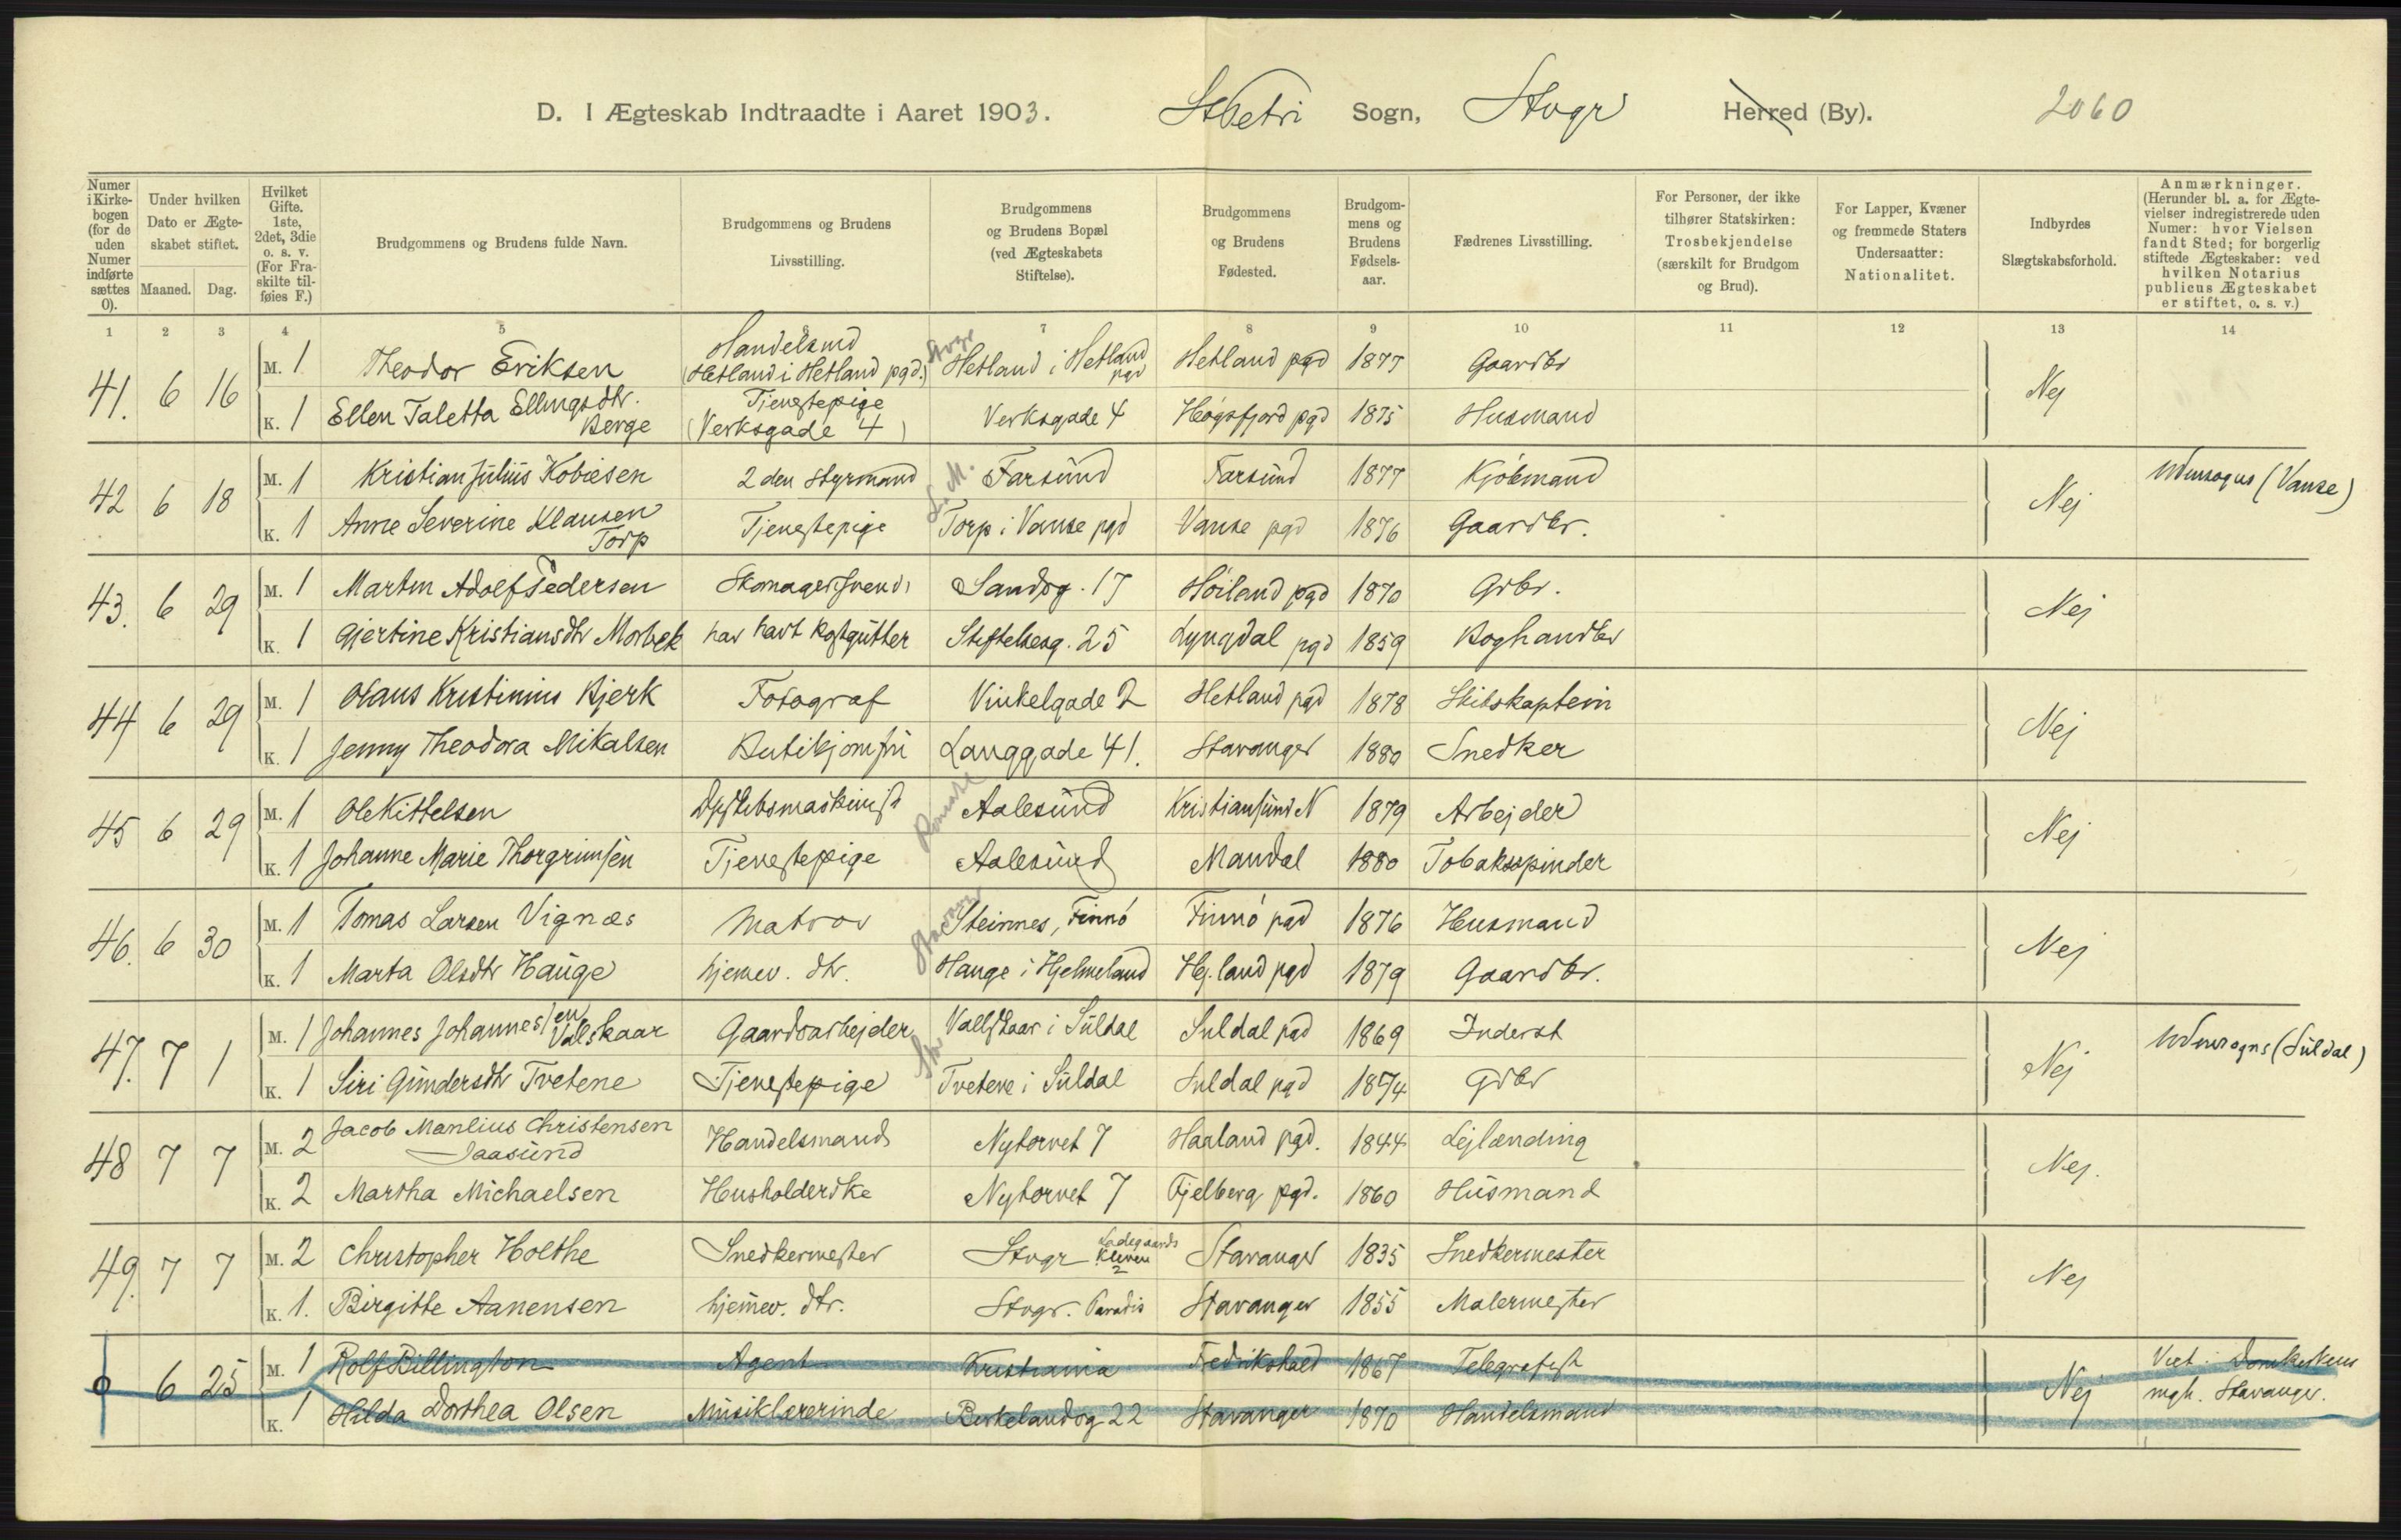 D. I Ægteskab Indtraadte i Aaret 1903. St Petri Sogn, Stvgr Herred (By). 2060
Numer i Kirkebogen (for de uden Numer indførte sættes 0).
Under hvilken Dato er Ægteskabet stiftet.
Maaned. Dag.
Hvilket Gifte. 1ste, 2det, 3die o. s. v. (For Fraskilte tilføies F.)
Brudgommens og Brudens fulde Navn.
Brudgommens og Brudens Livsstilling.
Brudgommens og Brudens Bopæl (ved Ægteskabets Stiftelse).
Brudgommens og Brudens Fødested.
Brudgommens og Brudens Fødselsaar.
Fædrenes Livsstilling.
For Personer, der ikke tilhører Statskirken: Trosbekjendelse (særskilt for Brudgom og Brud).
For Lapper, Kvæner og fremmede Staters Undersaatter: Nationalitet.
Indbyrdes Slægtskabsforhold.
Anmærkninger. (Herunder bl. a. for Ægtevielser indregistrerede uden Numer: hvor Vielsen fandt Sted; for borgerlig stiftede Ægteskaber: ved hvilken Notarius publicus Ægteskabet er stiftet, o. s. v.)
1 2 3 4 5 7 8 9 10 11 12 13 14
41. 6 16 M. 1 Theodor Eriksen Handelsmd (Hetland i Hetland pgd.) Stvgr Hetland i Hetland pgd Hetland pgd 1877 Gaardbr Nej
K. 1 Ellen Taletta Ellingsdtr. Berge Tjenestepige (Verksgade 4) Verksgade 4 Høgsfjord pgd 1875 Husmand
42 6 18 M. 1 Kristian Julius Tobiesen 2den Styrmand L. M. Farsund Farsund 1877 Kjøbmand Nej Udensogns (Vanse)
K. 1 Anne Severine Klausen Torp Tjenestepige Torp i Vanse pgd Vanse pgd 1876 Gaardbr.
43. 6 29 M. 1 Martin Adolf Pedersen Skomagersvend Sandsg. 17 Høiland pgd 1870 Grbr. Nej
K. 1 Gjertine Kristiansdtr Morbek har havt Kostgutter Stiftelsesg. 25 Lyngdal pgd 1859 Boghandler
44 6 29 M. 1 Olaus Kristinius Bjerk Fotograf Vinkelgade 2 Hetland pgd 1878 Skibskaptein Nej
K. 1 Jenny Theodora Mikalsen Butikjomfru Langgade 41. Stavanger 1880 Snedker
45 6 29 M. 1 Ole Kittelsen Dpskibsmaskinist Romsd Aalesund Kristiansund N 1879 Arbejder Nej
K. 1 Johanne Marie Thorgrimsen Tjenestepige Aalesund Mandal 1880 Tobakspinder
46. 6 30 M. 1 Tomas Larsen Vignæs Matros Stavang Steinnes, Finnø Finnø pgd 1876 Husmand Nej
K. 1 Marta Olsdtr Hauge hjemev. dtr. Hauge i Hjelmeland Hj.land pgd 1879 Gaardbr.
47. 7 1 M. 1 Johannes Johannessen Valskaar Gaardsarbejder Stv Vallskaar i Suldal Suldal pgd 1869 Inderst Nej Udensogns (Suldal)
K. 1 Siri Gundersdtr Tvetene Tjenestepige Tvetene i Suldal Suldal pgd 1874 Grbr
48 7 7 M. 2 Jacob Manlius Christensen Jaasund Handelsmand Nytorvet 7 Haaland pgd. 1844 Lejlænding Nej.
K. 2 Martha Michaelsen Husholderske Nytorvet 7 Fjelberg pgd. 1860 Husmand
49. 7 7 M. 2 Christopher Holthe Snedkermester Stvgr Ladegaards Kleven 2 Stavanger 1835 Snedkermester Nej
K. 1. Birgitte Aanensen hjemev. dtr. Stvgr. Paradis Stavanger 1855 Malermester
0 6 25 M. 1 Rolf Billington Agent Kristiania Fredrikshald 1867 Telegrafist Nej Viet i Domkirkens mgh. Stavanger.
K. 1 Hilda Dorthea Olsen Musiklærerinde Birkelandsg 22 Stavanger 1870 Handelsmand